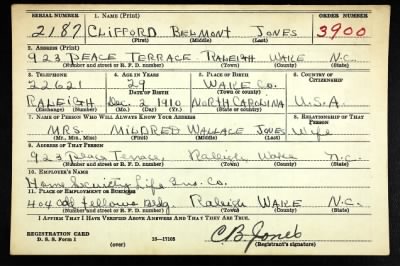 SERIAL NUMBER 1. NAME (Print) ORDER NUMBER
2187 CLIFFORD BELMONT JONES 3900
(First) (Middle) (Last)
2. ADDRESS (Print)
923 PEACE TERRACE RALEIGH WAKE N.C.
(Number and street or R. F. D. number) (Town) (County) (State)
3. TELEPHONE 4. AGE IN YEARS 5. PLACE OF BIRTH 6. COUNTRY OF CITIZENSHIP
22621 29 WAKE CO.
DATE OF BIRTH (Town or county)
RALEIGH Dec. 2, 1910 NORTH CAROLINA U.S.A.
(Exchange) (Number) (Mo.) (Day) (Yr.) (State or country)
7. NAME OF PERSON WHO WILL ALWAYS KNOW YOUR ADDRESS 8. RELATIONSHIP OF THAT PERSON
MRS. MILDRED WALLACE JONES Wife
(Mr., Mrs., Miss) (First) (Middle) (Last)
9. ADDRESS OF THAT PERSON
923 Peace Terrace Raleigh Wake N.C.
(Number and street or R. F. D. number) (Town) (County) (State)
10. EMPLOYER'S NAME
Home Security Life Ins. Co.
11. PLACE OF EMPLOYMENT OR BUSINESS
404 Odd Fellows Bldg. Raleigh WAKE N.C.
(Number and street or R. F. D. number) (Town) (County) (State)
I AFFIRM THAT I HAVE VERIFIED ABOVE ANSWERS AND THAT THEY ARE TRUE.
REGISTRATION CARD
D. S. S. Form 1 (over) 16—17105 C.B. Jones
(Registrant's signature)